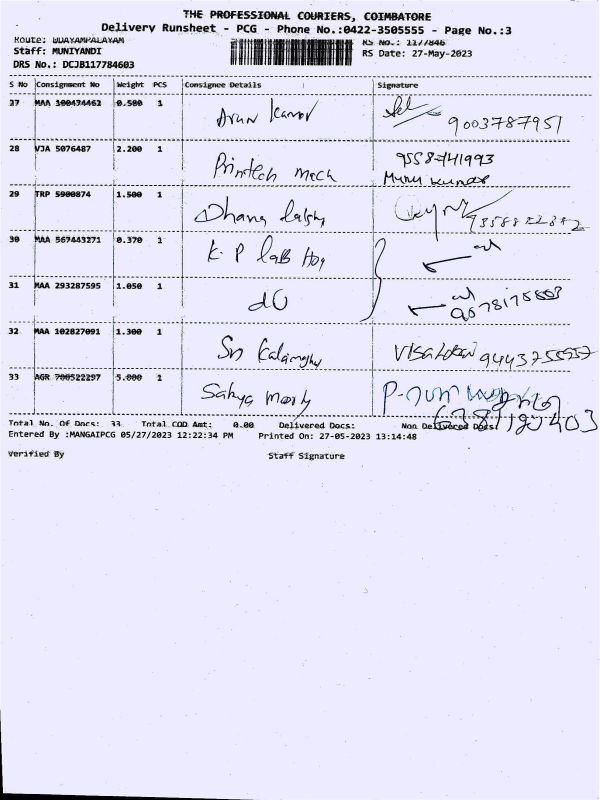 THE PROFESSIONAL COURIERS, COIMBATORE
Delivery Runsheet - PCG - Phone No.:0422-3505555 - Page No.:3
Route: UDAYAMPALAYAM
RS No.: 1177846
Staff: MUNIYANDI
RS Date: 27-May-2023
DRS No.: DCJB117784603
S No Consignment No Weight PCS Consignee Details Signature
27 MAA 100474462 0.500 1 Arun Kumar 9003787951
28 VJA 5076487 2.200 1 Printech Mech 9558741993
Muru Kumar
29 TRP 5900874 1.500 1 Dhana
30 MAA 567443271 0.370 1 K. P lab
31 MAA 293287595 1.050 1 do
32 MAA 102827091 1.300 1 Sri
33 AGR 700522297 5.000 1 Sakya
Total No. Of Docs: 33 Total COD Amt: 0.00 Delivered Docs: Non Delivered Docs:
Entered By :MANGAIPCG 05/27/2023 12:22:34 PM Printed On: 27-05-2023 13:14:48
Verified By Staff Signature